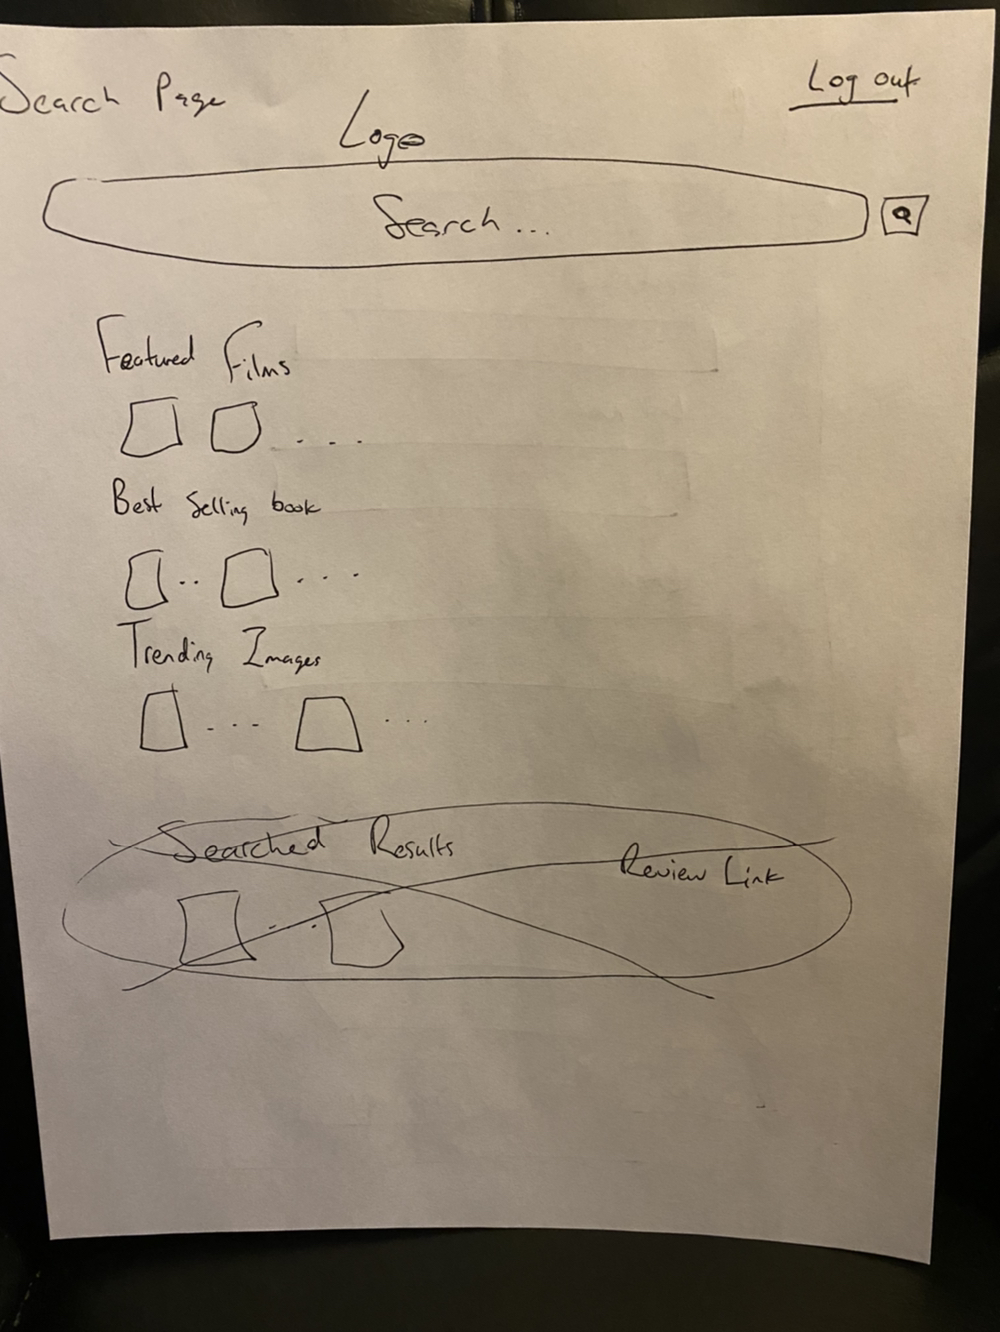 Search Page
Log out
Logo
Search...
Featured Films
. . .
Best Selling book
.. ...
Trending Images
... ...
Searched Results
Review Link
..